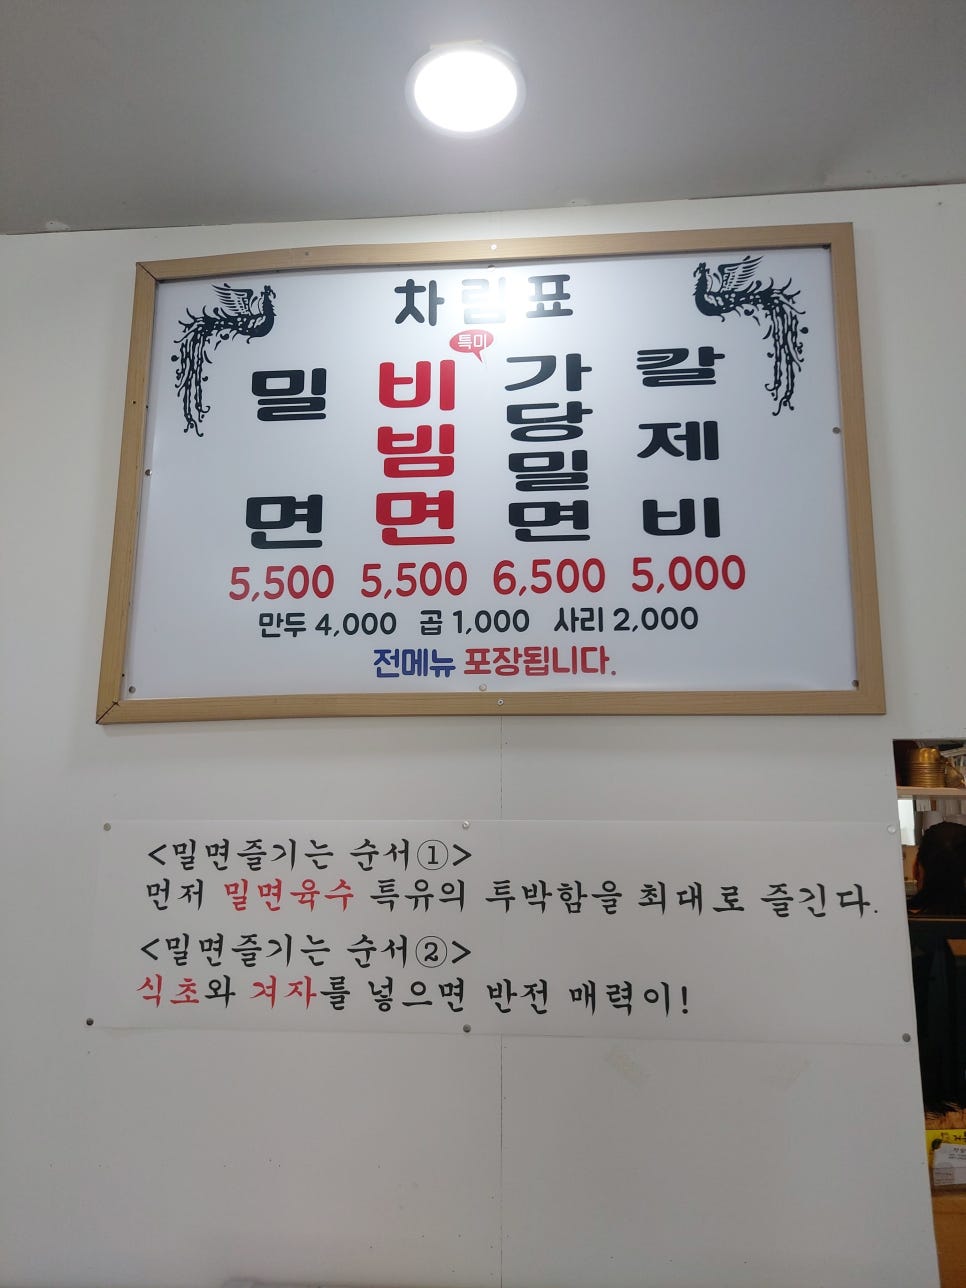 차림표
특미
밀면
비빔면
가당밀면
칼제비
5,500 5,500 6,500 5,000
만두 4,000 곱 1,000 사리 2,000
전메뉴 포장됩니다.
<밀면즐기는 순서①>
먼저 밀면육수 특유의 투박함을 최대로 즐긴다.
<밀면즐기는 순서②>
식초와 겨자를 넣으면 반전 매력이!